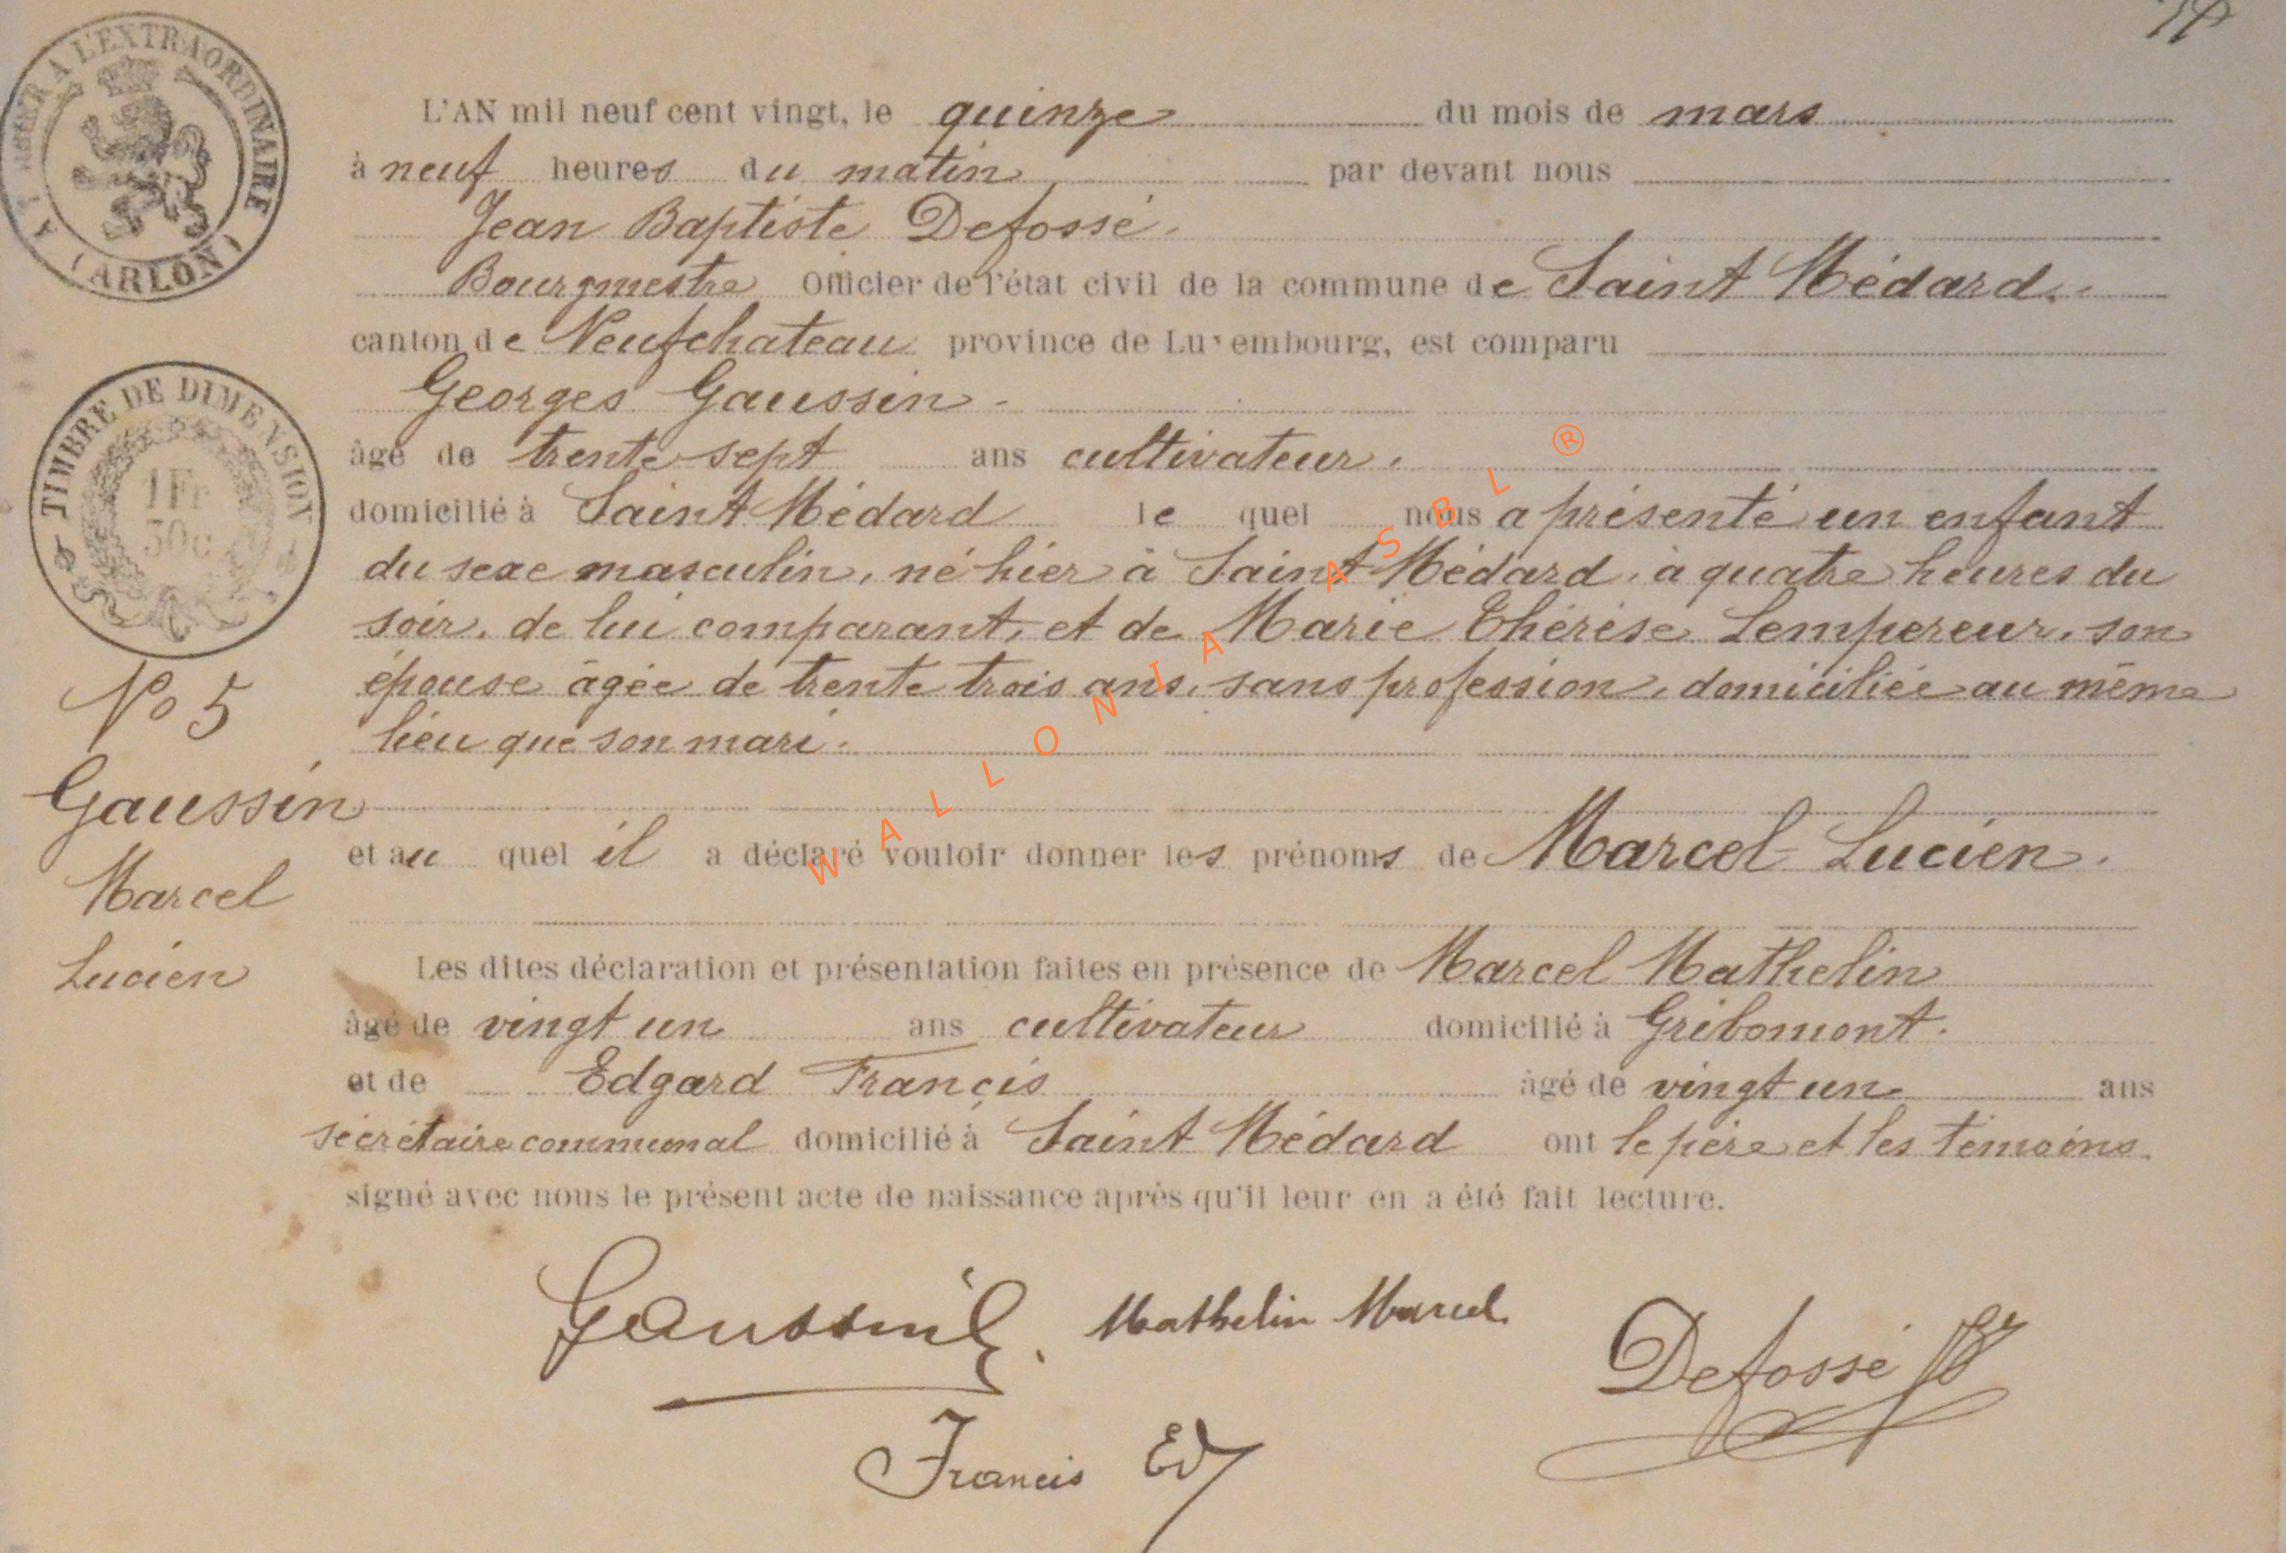 A L'EXTRAORDINAIRE
(ARLON)
L'AN mil neuf cent vingt, le quinze du mois de mars
à neuf heures du matin par devant nous
Jean Baptiste Defossé.
Bourgmestre Officier de l'état civil de la commune de Saint Médard.
canton de Neufchateau province de Luxembourg, est comparu
Georges Gaussin.
âgé de trente sept ans cultivateur.
domicilié à Saint Médard le quel nous a présenté un enfant
du sexe masculin, né hier à Saint Médard, à quatre heures du
soir, de lui comparant, et de Marie Thérèse Lempereur, son
épouse âgée de trente trois ans, sans profession, domiciliée au même
lieu que son mari.
et au quel il a déclaré vouloir donner les prénoms de Marcel Lucien.
Les dites déclaration et présentation faites en présence de Marcel Mathelin
âgé de vingt un ans cultivateur domicilié à Gribomont.
et de Edgard Francis âgé de vingt un ans
secrétaire communal domicilié à Saint Médard ont le père et les témoins
signé avec nous le présent acte de naissance après qu'il leur en a été fait lecture.
TIMBRE DE DIMENSION
1Fr
30c
No 5
Gaussin
Marcel
Lucien
Gaussin G. Mathelin Marcel
Defossé JB
Francis Ed
WALLONIA ASBL ®